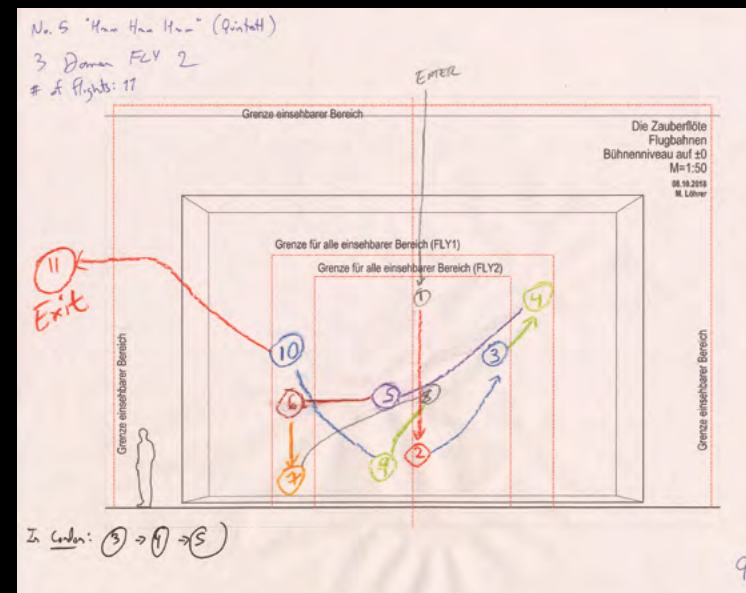 No. 5 "Hmm Hmm Hmm" (Quintett)
3 Damen FLY 2
# of flights: 11
ENTER
Grenze einsehbarer Bereich
Die Zauberflöte
Flugbahnen
Bühnenniveau auf ±0
M=1:50
08.10.2018
M. Löhrer
Grenze für alle einsehbarer Bereich (FLY1)
Grenze für alle einsehbarer Bereich (FLY2)
11
Exit
1
4
3
10
5
8
6
2
9
7
Grenze einsehbarer Bereich
Grenze einsehbarer Bereich
In : 3 → 4 → 5